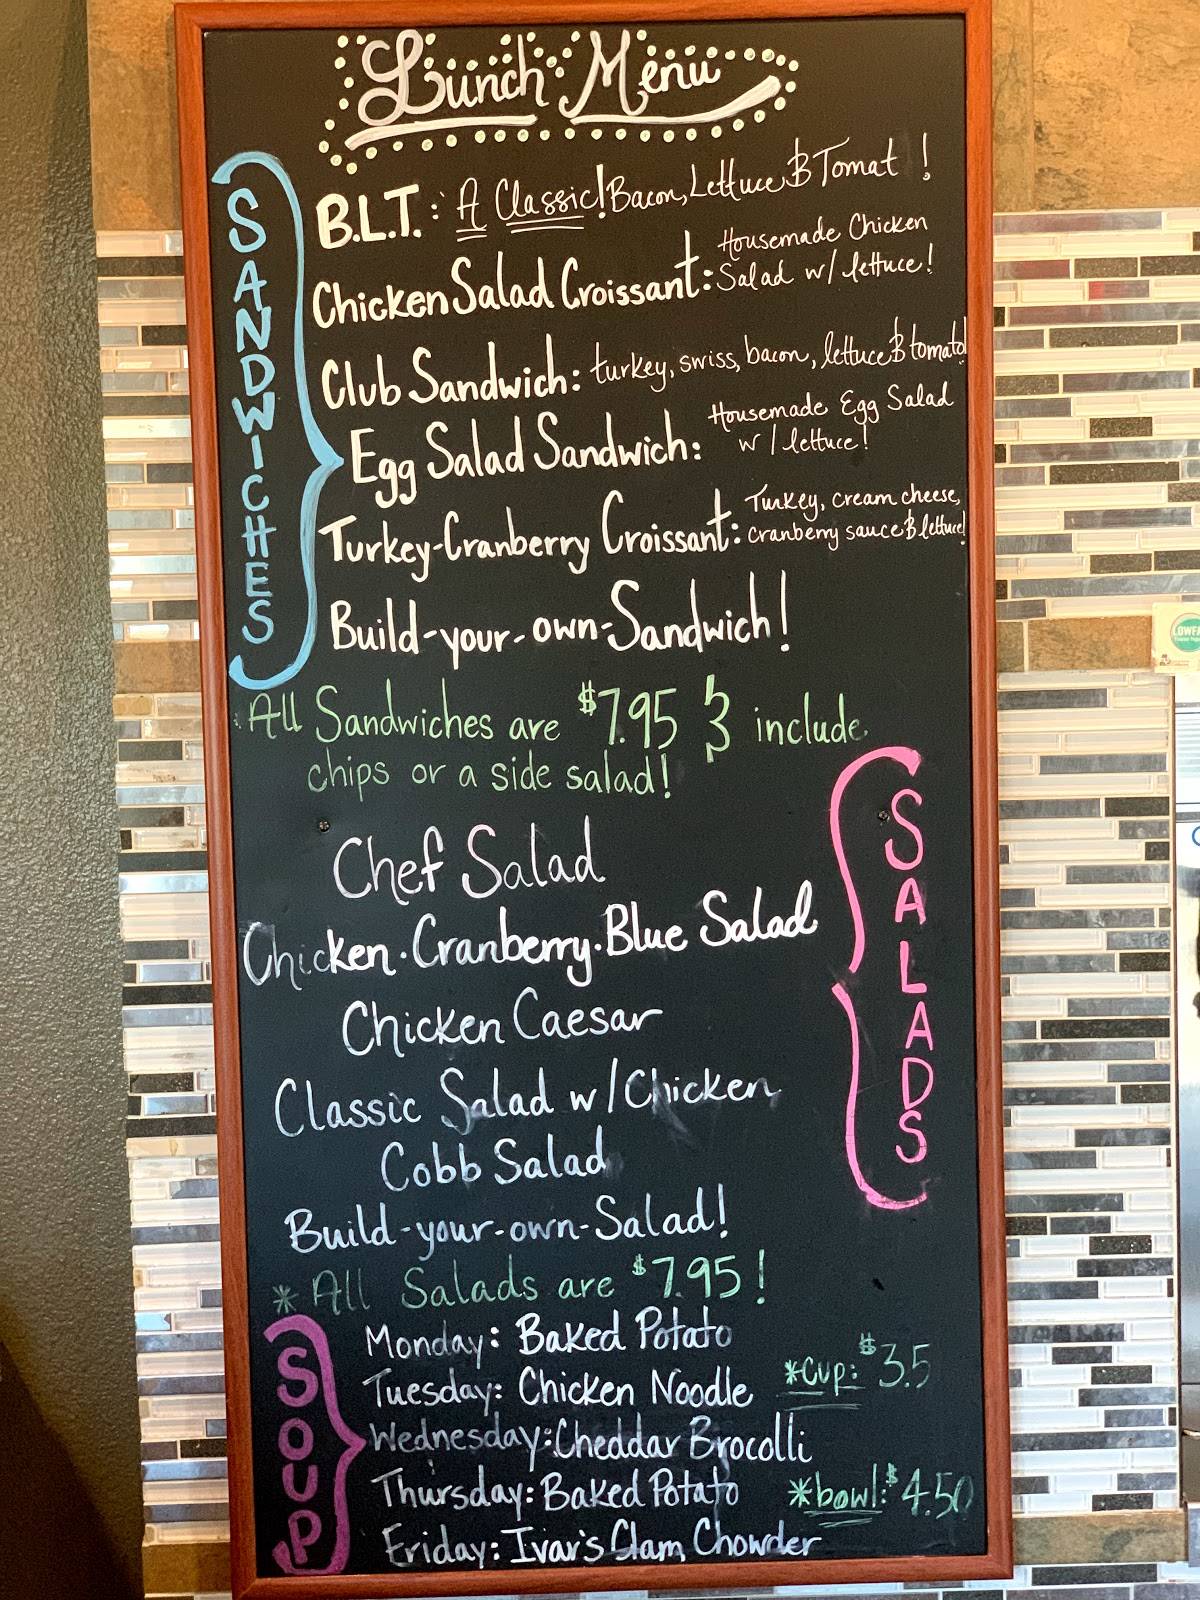 Lunch Menu
SANDWICHES
B.L.T.: A Classic! Bacon, Lettuce & Tomat !
Chicken Salad Croissant: Housemade Chicken
Salad w/ lettuce!
Club Sandwich: turkey, swiss, bacon, lettuce & tomato!
Egg Salad Sandwich: Housemade Egg Salad
w/ lettuce!
Turkey-Cranberry Croissant: Turkey, cream cheese,
cranberry sauce & lettuce!
Build-your-own-Sandwich!
*All Sandwiches are $7.95 & include
chips or a side salad!
SALADS
Chef Salad
Chicken·Cranberry·Blue Salad
Chicken Caesar
Classic Salad w/Chicken
Cobb Salad
Build-your-own-Salad!
* All Salads are $7.95!
SOUP
Monday: Baked Potato
Tuesday: Chicken Noodle
*cup: $3.5
Wednesday: Cheddar Brocolli
Thursday: Baked Potato
*bowl: $4.50
Friday: Ivar's Clam Chowder